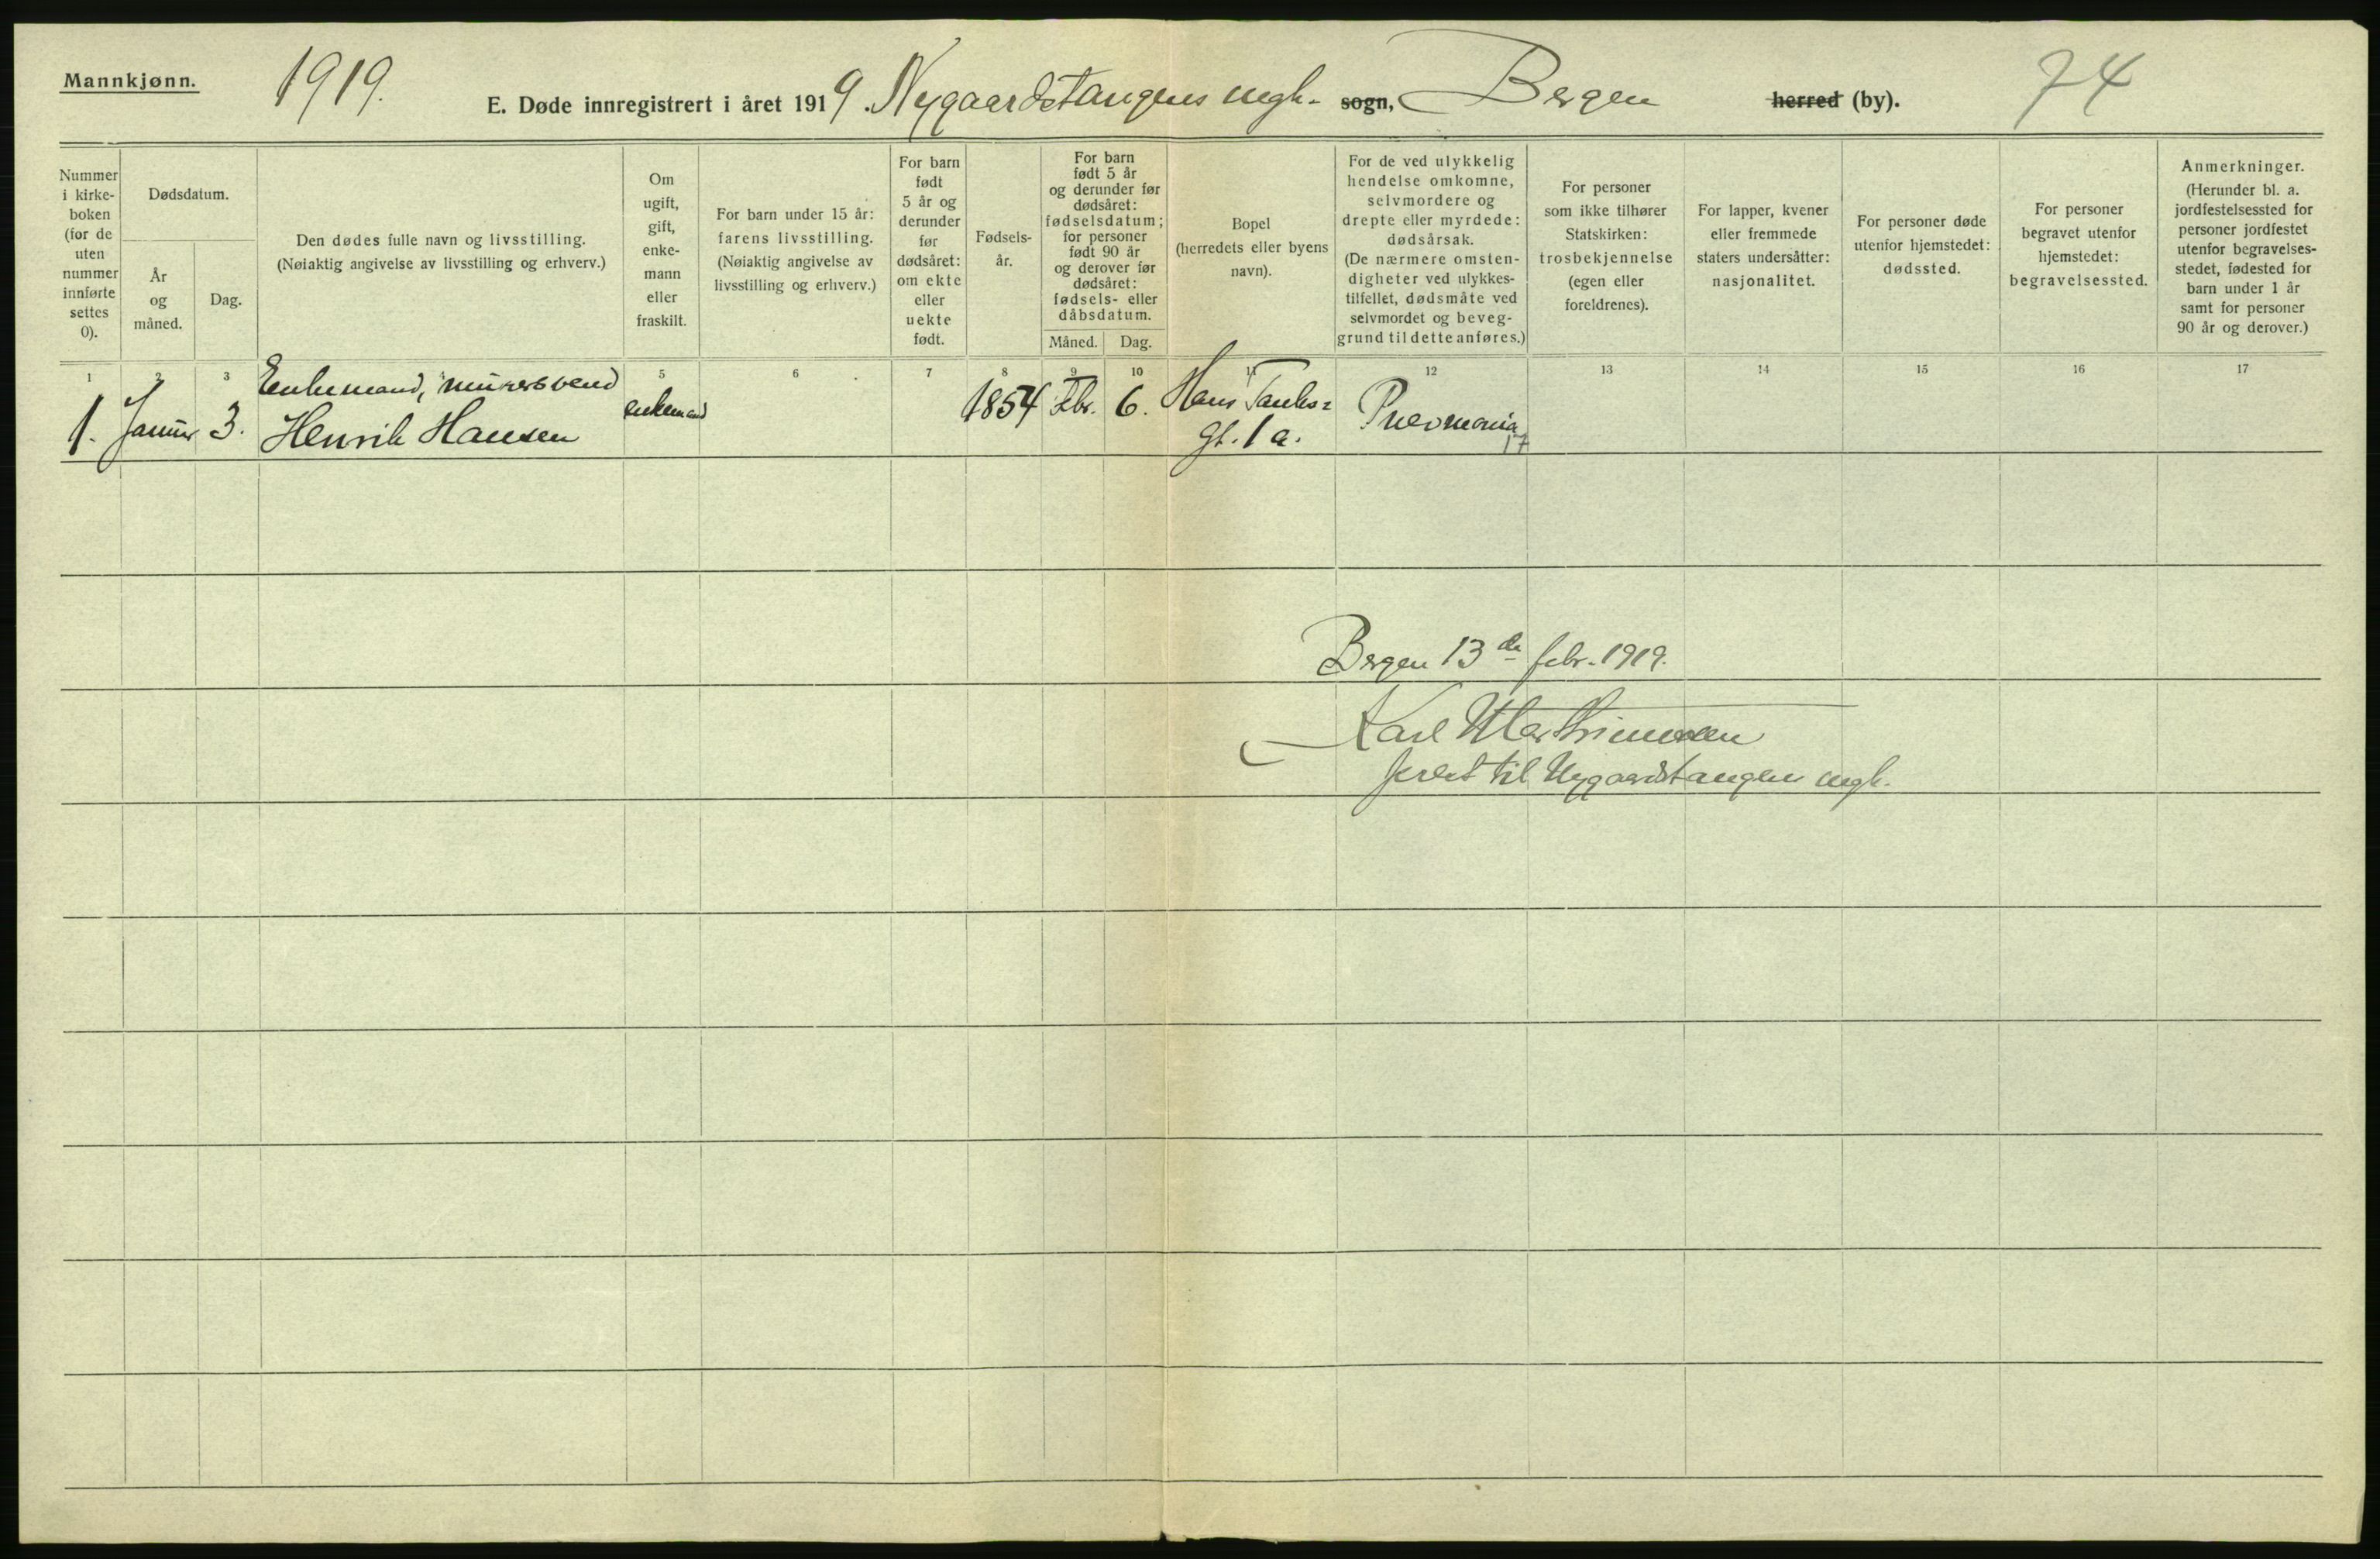 Mannkjønn.
1919.
E. Døde innregistrert i året 1919. Nygaardstangens mgh. sogn, Bergen herred (by).
74
Nummer
i kirke-
boken
(for de
uten
nummer
innførte
settes
0).
Dødsdatum.
År
og
måned.
Dag.
Den dødes fulle navn og livsstilling.
(Nøiaktig angivelse av livsstilling og erhverv.)
Om
ugift,
gift,
enke-
mann
eller
fraskilt.
For barn under 15 år:
farens livsstilling.
(Nøiaktig angivelse av
livsstilling og erhverv.)
For barn
født
5 år og
derunder
før
dødsåret:
om ekte
eller
uekte
født.
Fødsels-
år.
For barn
født 5 år
og derunder før
dødsåret:
fødselsdatum;
for personer
født 90 år
og derover før
dødsåret:
fødsels- eller
dåbsdatum.
Måned.
Dag.
Bopel
(herredets eller byens
navn).
For de ved ulykkelig
hendelse omkomne,
selvmordere og
drepte eller myrdede:
dødsårsak.
(De nærmere omsten-
digheter ved ulykkes-
tilfellet, dødsmåte ved
selvmordet og beveg-
grund til dette anføres.)
For personer
som ikke tilhører
Statskirken:
trosbekjennelse
(egen eller
foreldrenes).
For lapper, kvener
eller fremmede
staters undersåtter:
nasjonalitet.
For personer døde
utenfor hjemstedet:
dødssted.
For personer
begravet utenfor
hjemstedet:
begravelsessted.
Anmerkninger.
(Herunder bl. a.
jordfestelsessted for
personer jordfestet
utenfor begravelses-
stedet, fødested for
barn under 1 år
samt for personer
90 år og derover.)
1 2 3 5 6 7 8 9 10 11 12 13 14 15 16 17
Enkemand, murersvend
1. Januar 3. Henrik Hansen enkemand 1854 Fbr. 6. Hans Tanks=
gt. 1 a.
Pneomonia
17
Bergen 13de febr. 1919.
Karl Marthinussen
prest til Nygaardstangen mgh.